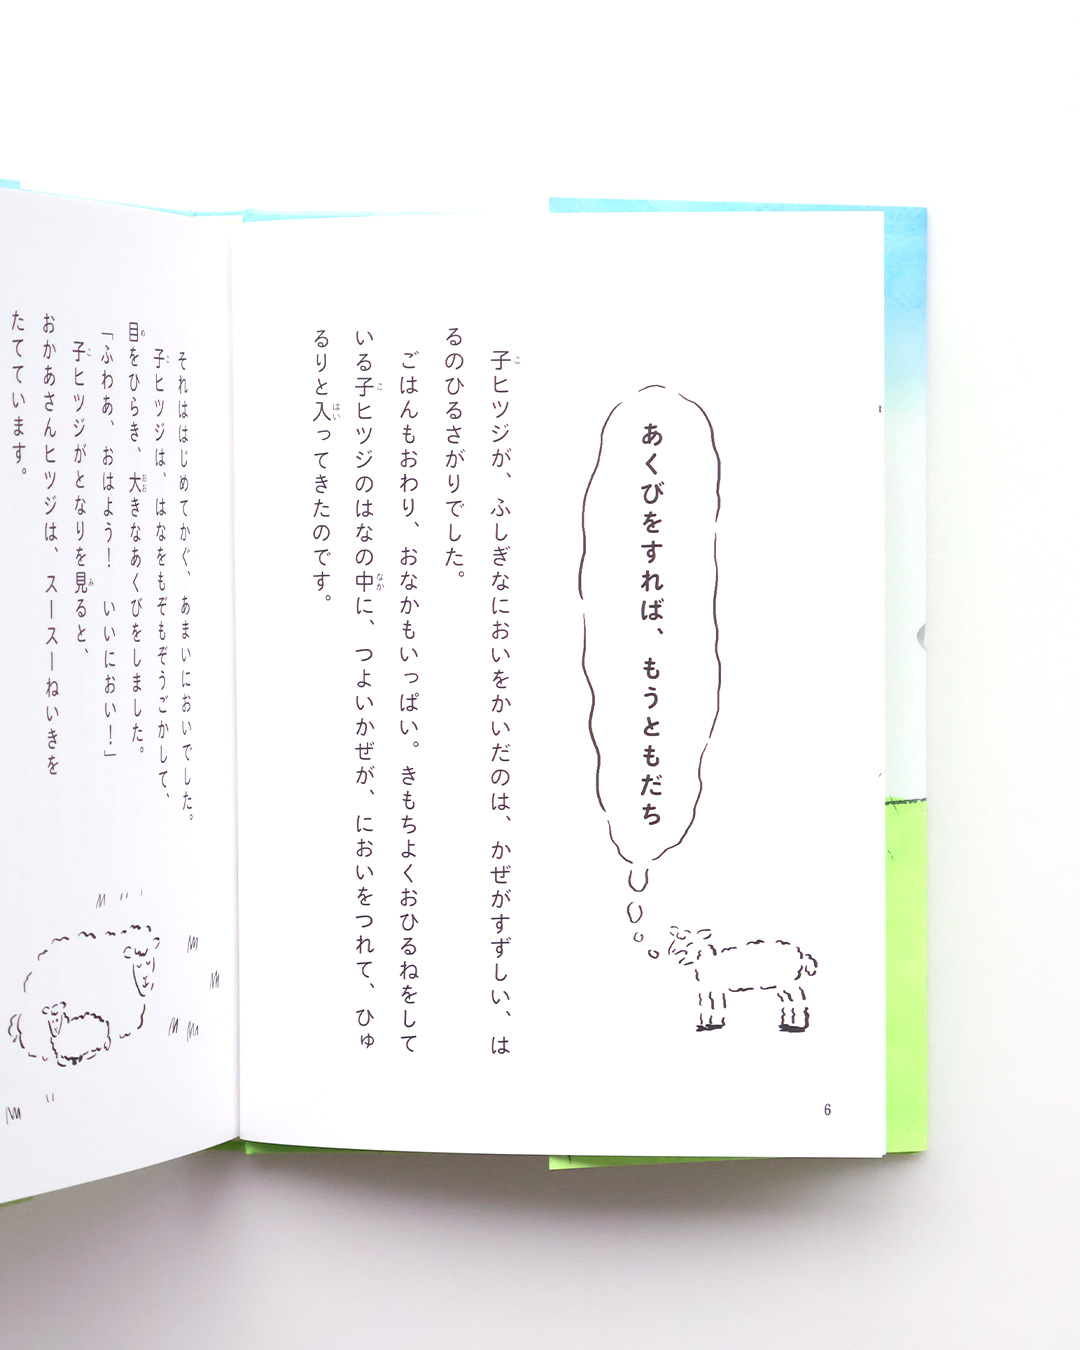 あくびをすれば、もうともだち
子ヒツジが、ふしぎなにおいをかいだのは、かぜがすずしい、は
るのひるさがりでした。
ごはんもおわり、おなかもいっぱい。きもちよくおひるねをして
いる子ヒツジのはなの中に、つよいかぜが、においをつれて、ひゅ
るりと入ってきたのです。
6
それははじめてかぐ、あまいにおいでした。
子ヒツジは、はなをもぞもぞうごかして、
目をひらき、大きなあくびをしました。
「ふわあ、おはよう！　いいにおい！」
子ヒツジがとなりを見ると、
おかあさんヒツジは、スースーねいきを
たてています。